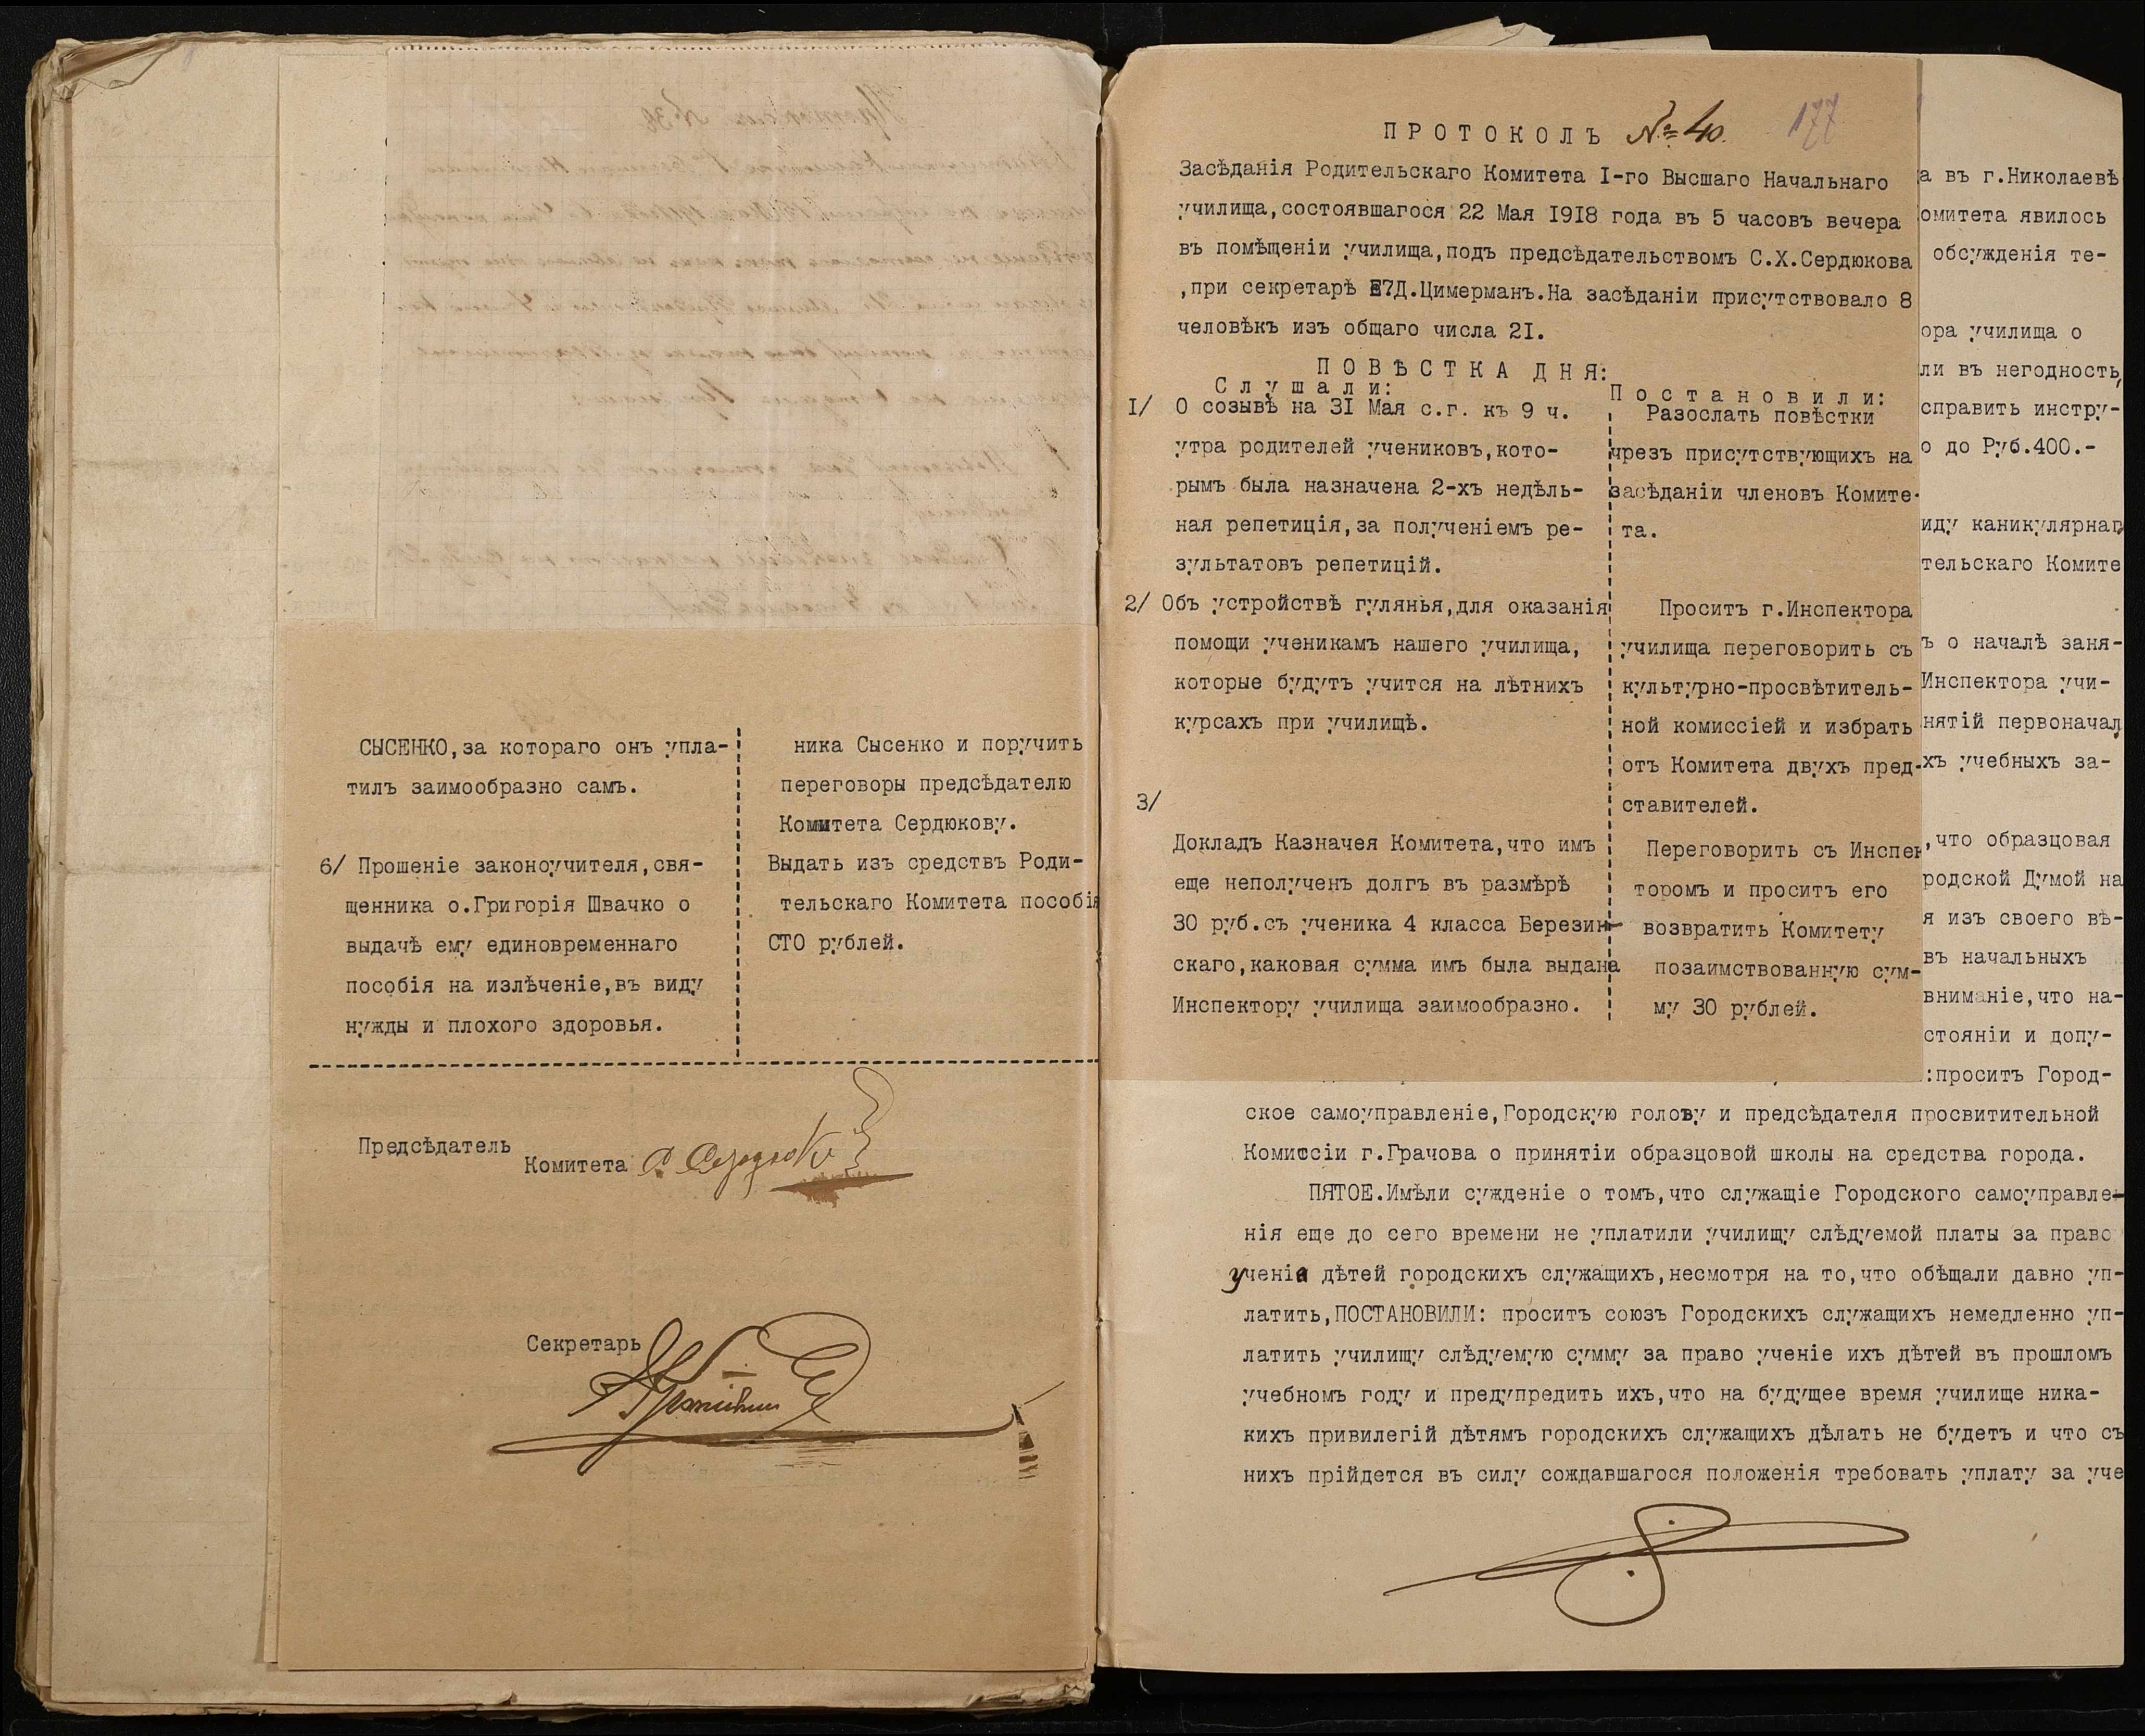 СЫСЕНКО,за котораго онъ упла-
тилъ заимообразно самъ.
6/ Прошеніе законоучителя,свя-
щенника о.Григорія Швачко о
выдачѣ ему единовременнаго
пособія на излѣченіе,въ виду
нужды и плохого здоровья.
ника Сысенко и поручить
переговоры предсѣдателю
Комитета Сердюкову.
Выдать изъ средствъ Роди-
тельскаго Комитета пособія
СТО рублей.
Предсѣдатель
Комитета
Секретарь
ПРОТОКОЛЪ № 40.
177
Засѣданія Родительскаго Комитета I-го Высшаго Начальнаго
училища,состоявшагося 22 Мая 1918 года въ 5 часовъ вечера
въ помѣщеніи училища,подъ предсѣдательствомъ С.Х.Сердюкова
,при секретарѣ Д.Цимерманъ.На засѣданіи присутствовало 8
человѣкъ изъ общаго числа 2I.
ПОВѢСТКА ДНЯ:
Слушали:
I/ О созывѣ на 3I Мая с.г. къ 9 ч.
утра родителей учениковъ,кото-
рымъ была назначена 2-хъ недѣль-
ная репетиція,за полученіемъ ре-
зультатовъ репетицій.
2/ Объ устройствѣ гулянья,для оказанія
помощи ученикамъ нашего училища,
которые будутъ учится на лѣтнихъ
курсахъ при училищѣ.
3/
Докладъ Казначея Комитета,что имъ
еще неполученъ долгъ въ размѣрѣ
30 руб.съ ученика 4 класса Березин-
скаго,каковая сумма имъ была выдана
Инспектору училища заимообразно.
Постановили:
Разослать повѣстки
чрезъ присутствующихъ на
засѣданіи членовъ Комите-
та.
Проситъ г.Инспектора
училища переговорить съ
культурно-просвѣтитель-
ной комиссіей и избрать
отъ Комитета двухъ пред-
ставителей.
Переговорить съ Инспек
торомъ и просить его
возвратить Комитету
позаимствованную сум-
му 30 рублей.
а въ г.Николаевѣ
омитета явилось
обсужденія те-
ора училища о
ли въ негодность,
справить инстру-
о до Руб.400.-
иду каникулярнаг
тельскаго Комите
ъ о началѣ заня-
Инспектора учи-
нятій первоначал
хъ учебныхъ за-
,что образцовая
родской Думой на
я изъ своего вѣ-
въ начальныхъ
вниманіе,что на-
стояніи и допу-
:проситъ Город-
ское самоуправленіе,Городскую голову и предсѣдателя просвитительной
Комиссіи г.Грачова о принятіи образцовой школы на средства города.
ПЯТОЕ.Имѣли сужденіе о томъ,что служащіе Городского самоуправле-
нія еще до сего времени не уплатили училищу слѣдуемой платы за право
ученія дѣтей городскихъ служащихъ,несмотря на то,что обѣщали давно уп-
латить,ПОСТАНОВИЛИ: проситъ союзъ Городскихъ служащихъ немедленно уп-
латить училищу слѣдуемую сумму за право ученіе ихъ дѣтей въ прошломъ
учебномъ году и предупредить ихъ,что на будущее время училище ника-
кихъ привилегій дѣтямъ городскихъ служащихъ дѣлать не будетъ и что съ
нихъ прійдется въ силу сождавшагося положенія требовать уплату за уче